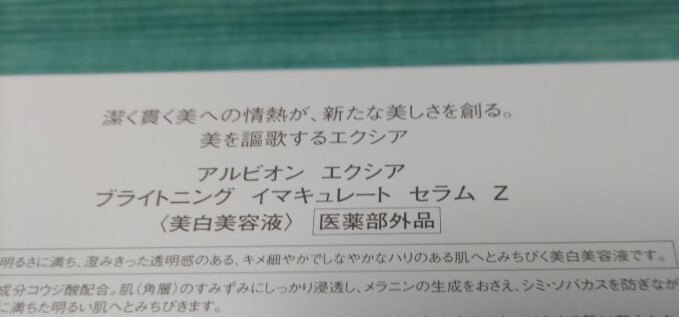 潔く貫く美への情熱が、新たな美しさを創る。
美を謳歌するエクシア
アルビオン エクシア
ブライトニング イマキュレート セラム Z
〈美白美容液〉 医薬部外品
明るさに満ち、澄みきった透明感のある、キメ細やかでしなやかなハリのある肌へとみちびく美白美容液です。
成分コウジ酸配合。肌(角層)のすみずみにしっかり浸透し、メラニンの生成をおさえ、シミ・ソバカスを防ぎなが
に満ちた明るい肌へとみちびきます。